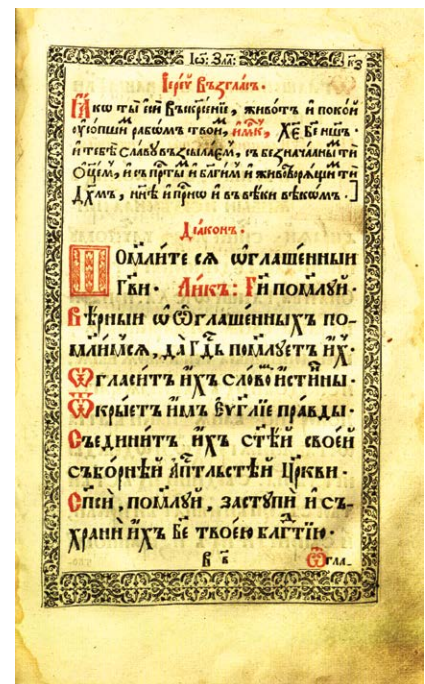 Іѡ: Зла: к҃з
Іерей Възгласъ.
Ꙗкѡ ты̀ еси̂ Въскр҃сенїе, живо́тъ и҆ поко́й
оу҆со́пши̇̄ рабѡ́мъ твои̇̄, и҆́м҃къ, Х҃Е Б҃е н҃шъ.
и҆ тебѣ̀ Сла́вꙋ въ́зсыла́е̇̄, съ безнача́лны̇̄ ти
Ѻ҆ц҃е́м, и҆ съ пр҃ты̇̄ и҆ бл҃ги́м и҆ животворѧ́щи̇̄ ти
Д҃хмъ, н҃нѣ и҆ пр҃исѡ и҆ въ вѣ́ки вѣкѡ́мъ.
Дїа́конъ.
Помли́те сѧ ѡ҆глаше́нныи
Г҃ви. Ли́къ: Г҃и поми́лꙋй.
Вѣ́рныи ѡ҆ Ѡ҆глаше́нныхъ по-
мли́мсѧ, да̀ Г҃дь поми́лꙋетъ и҆́хъ.
Ѡ҆гласи́тъ и҆́хъ сло́во и҆́стины.
Ѿкры́етъ и҆́мъ Еѵ҃глїе пра́вды.
Съедини́тъ и҆́хъ с҃тѣ́й свое́й
събо́рнѣй ап҃тльстѣй Ц҃ркви.
Сп҃си̂, поми́лꙋй, застꙋпи̂ и҆ съ-
храни̂ и҆́хъ Б҃е твое́ю бл҃гтїю.
В в҃ Ѡ҆гла-